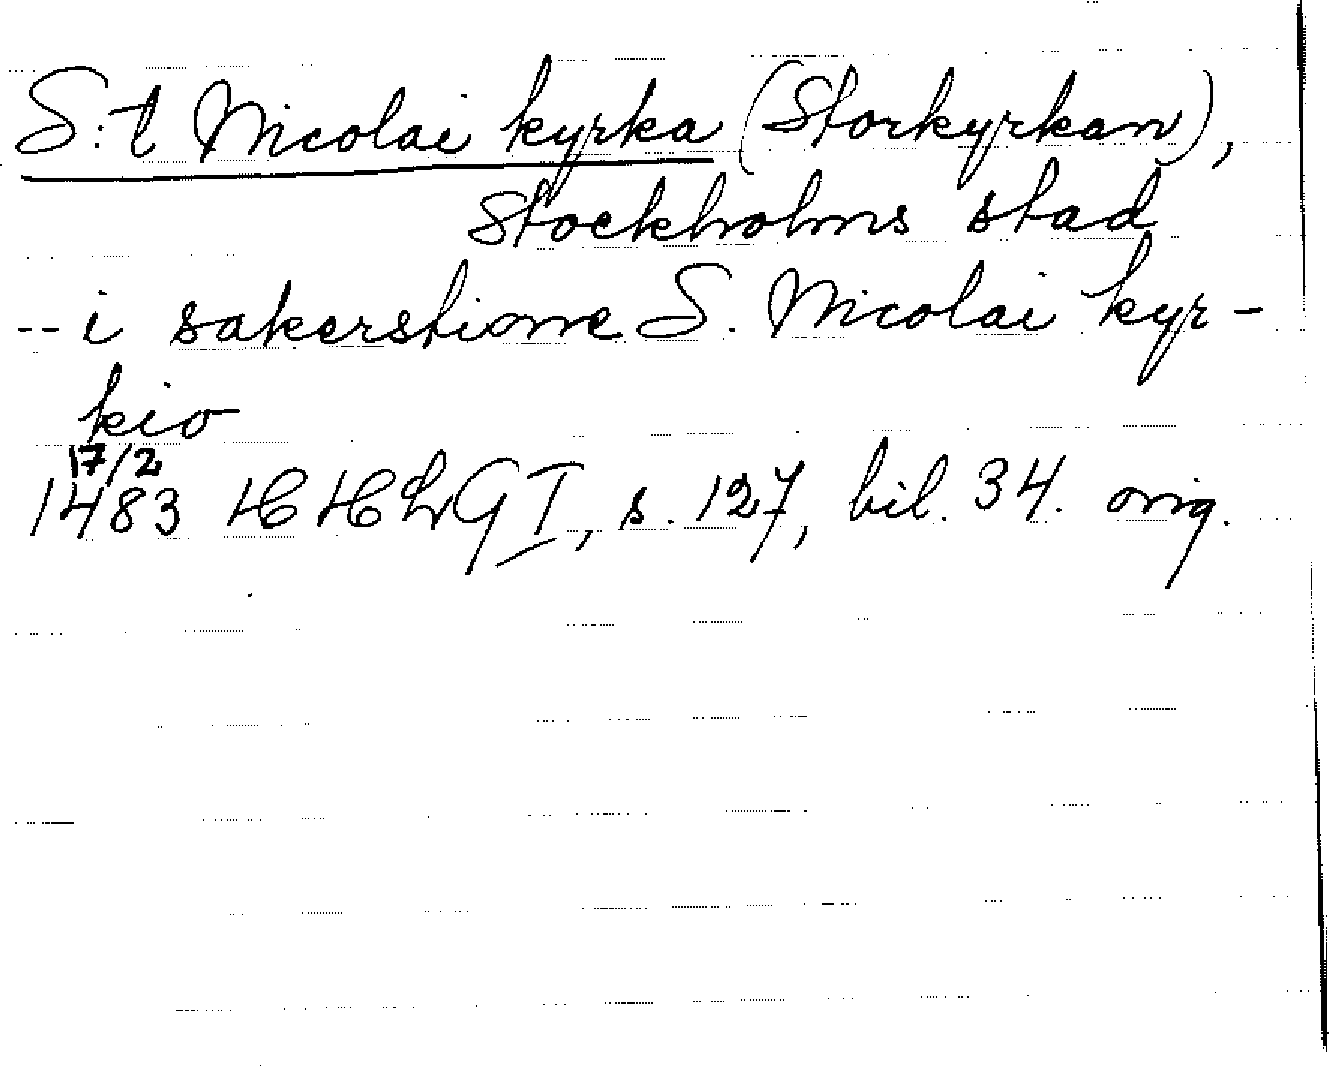 S:t Nicolai kyrka (Storkyrkan),
Stockholms stad
-- i sakerstionne S. Nicolai kyr-
kio
17/2
1483 HHLG I, s. 127, bil. 34. orig.